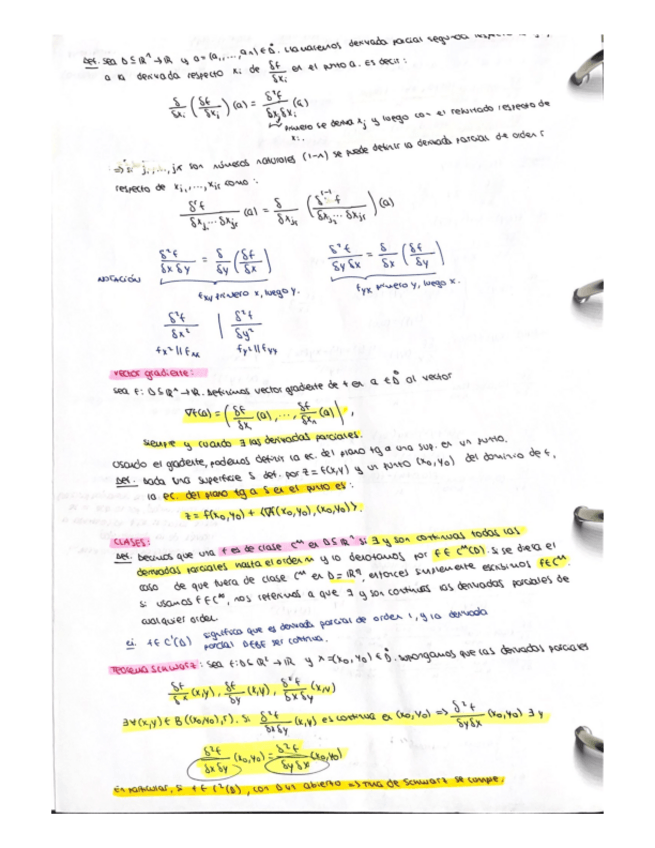 Def. sea D ⊆ ℝⁿ → ℝ y a = (a₁, ..., aₙ) ∈ D̊. Llamaremos derivada parcial segunda respecto
a la derivada respecto xᵢ de δf/δxⱼ en el punto a. Es decir:
δ/δxᵢ (δf/δxⱼ)(a) = δ²f/δxⱼδxᵢ (a)
primero se deriva xⱼ y luego con el resultado respecto de
xᵢ.
⇒ si j₁, ..., jr son números naturales (1-n) se puede definir la derivada parcial de orden r
respecto de xj₁, ..., xjr como:
δʳf/δxj₁...δxjr (a) = δ/δxjr (δʳ⁻¹f/δxj₁...δxjr)(a)
NOTACIÓN δ²f/δxδy = δ/δy (δf/δx) δ²f/δyδx = δ/δx (δf/δy)
fxy primero x, luego y. fyx primero y, luego x.
δ²f/δx² | δ²f/δy²
fx² || fxx fy² || fyy
Vector gradiente:
sea f: D ⊆ ℝⁿ → ℝ. Definimos vector gradiente de f en a ∈ D̊ al vector
∇f(a) = (δf/δx₁ (a), ..., δf/δxₙ (a)),
siempre y cuando ∃ las derivadas parciales.
Usando el gradiente, podemos definir la ec. del plano tg a una sup. en un punto.
Def. Dada una superficie S def. por z = f(x,y) y un punto (x₀,y₀) del dominio de f,
la ec. del plano tg a S en el punto es:
z = f(x₀,y₀) + ⟨∇f(x₀,y₀),(x₀,y₀)⟩.
CLASES:
Def. Decimos que una f es de clase Cᵐ en D ⊆ ℝⁿ si ∃ y son continuas todas las
derivadas parciales hasta el orden m y lo denotamos por f ∈ Cᵐ(D). Si se diera el
caso de que fuera de clase Cᵐ en D = ℝⁿ, entonces simplemente escribimos f ∈ Cᵐ.
Si usamos f ∈ C^∞, nos referimos a que ∃ y son continuas las derivadas parciales de
cualquier orden.
ej. f ∈ C¹(D) significa que es derivada parcial de orden 1, y la derivada
parcial DEBE ser continua.
Teorema Schwarz: sea f: D ⊆ ℝ² → ℝ y x = (x₀,y₀) ∈ D̊. Supongamos que las derivadas parciales
δf/δx (x,y), δf/δy (x,y), δ²f/δxδy (x,y)
∃ ∀(x,y) ∈ B((x₀,y₀),r). Si δ²f/δxδy (x,y) es continua en (x₀,y₀) ⇒ δ²f/δyδx (x₀,y₀) ∃ y
δ²f/δxδy (x₀,y₀) = δ²f/δyδx (x₀,y₀)
En particular, si f ∈ C²(D), con D un abierto ⇒ Tma de Schwarz se cumple.